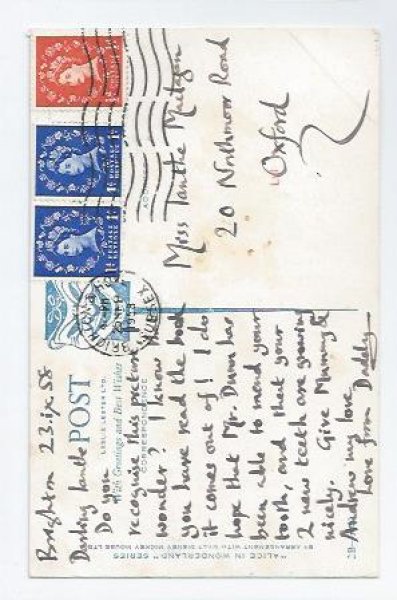 Brighton 23.ix.58
Darling
Do you
recognise this picture I
wonder? I know
you have read the book
it comes out of! I do
hope that Mr. Dunn has
been able to mend your
tooth, and that your
2 new teeth are growing
nicely. Give Mummy &
Andrew my love.
Love from Daddy
Miss
20 Northmoor Road
Oxford
POST
LESLIE LESTER LTD.
With Greetings and Best Wishes
CORRESPONDENCE
"ALICE IN WONDERLAND" SERIES
BY ARRANGEMENT WITH WALT DISNEY MICKEY MOUSE LTD.
BRIGHTON &
SUSSEX
1958
POSTAGE REVENUE